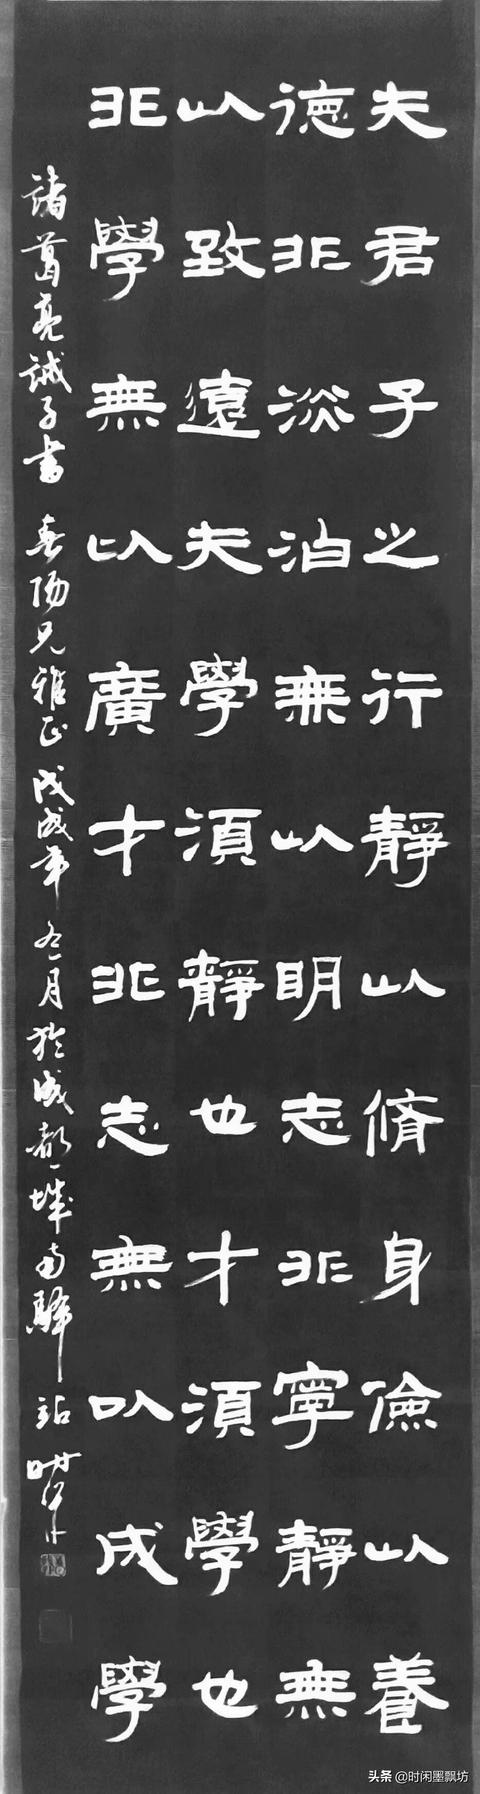 夫君子之行靜以脩身儉以養
德非淡泊無以明志非寧靜無
以致遠夫學須靜也才須學也
非學無以廣才非志無以成學
諸葛亮誡子書 春陽兄雅正 戊戌年冬月於成都城南驛站
头条 @时闲墨飘坊